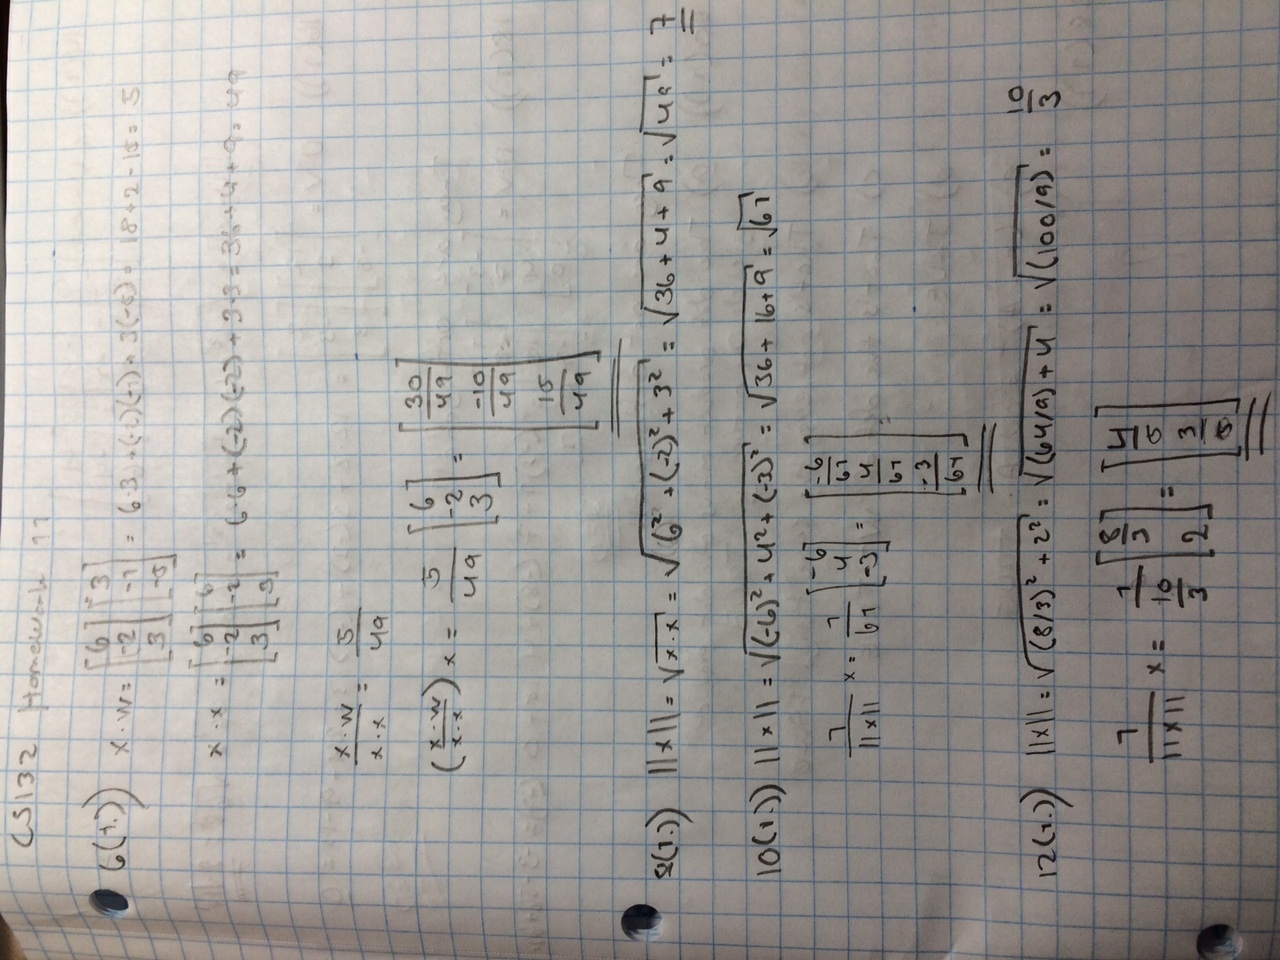 CS132 Homework 11
6(1.)) x·w = [6 -2 3] [3 -1 -5] = 6·3 + (-2)(-1) + 3(-5) = 18+2-15 = 5
x·x = [6 -2 3] [6 -2 3] = 6·6 + (-2)(-2) + 3·3 = 36+4+9 = 49
x·w / x·x = 5/49
(x·w / x·x) x = 5/49 [6 -2 3] = [30/49 -10/49 15/49]
8(1.)) ||x|| = √x·x = √6² + (-2)² + 3² = √36+4+9 = √49 = 7
10(1.)) ||x|| = √(-6)² + 4² + (-3)² = √36+16+9 = √61
1/||x|| x = 1/61 [-6 4 -3] = [-6/61 4/61 -3/61] =
12(1.)) ||x|| = √(8/3)² + 2² = √(64/9) + 4 = √(100/9) = 10/3
1/||x|| x = 1/(10/3) [8/3 2] =